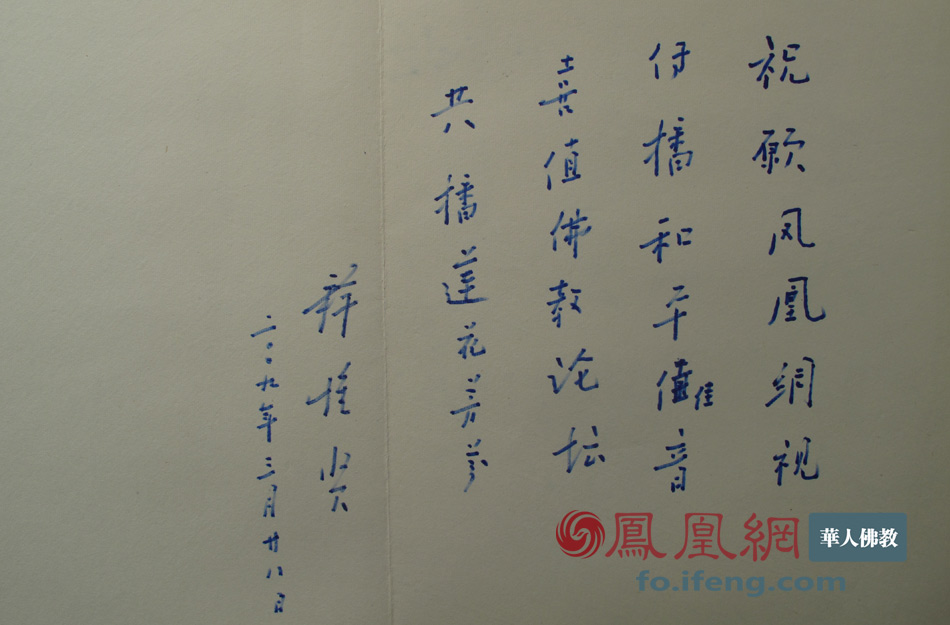 祝愿凤凰網视
传播和平佳音
喜值佛教论坛
共播莲花芳芬
释惟贤
二〇〇九年三月廿八日
鳳凰網
華人佛教
fo.ifeng.com